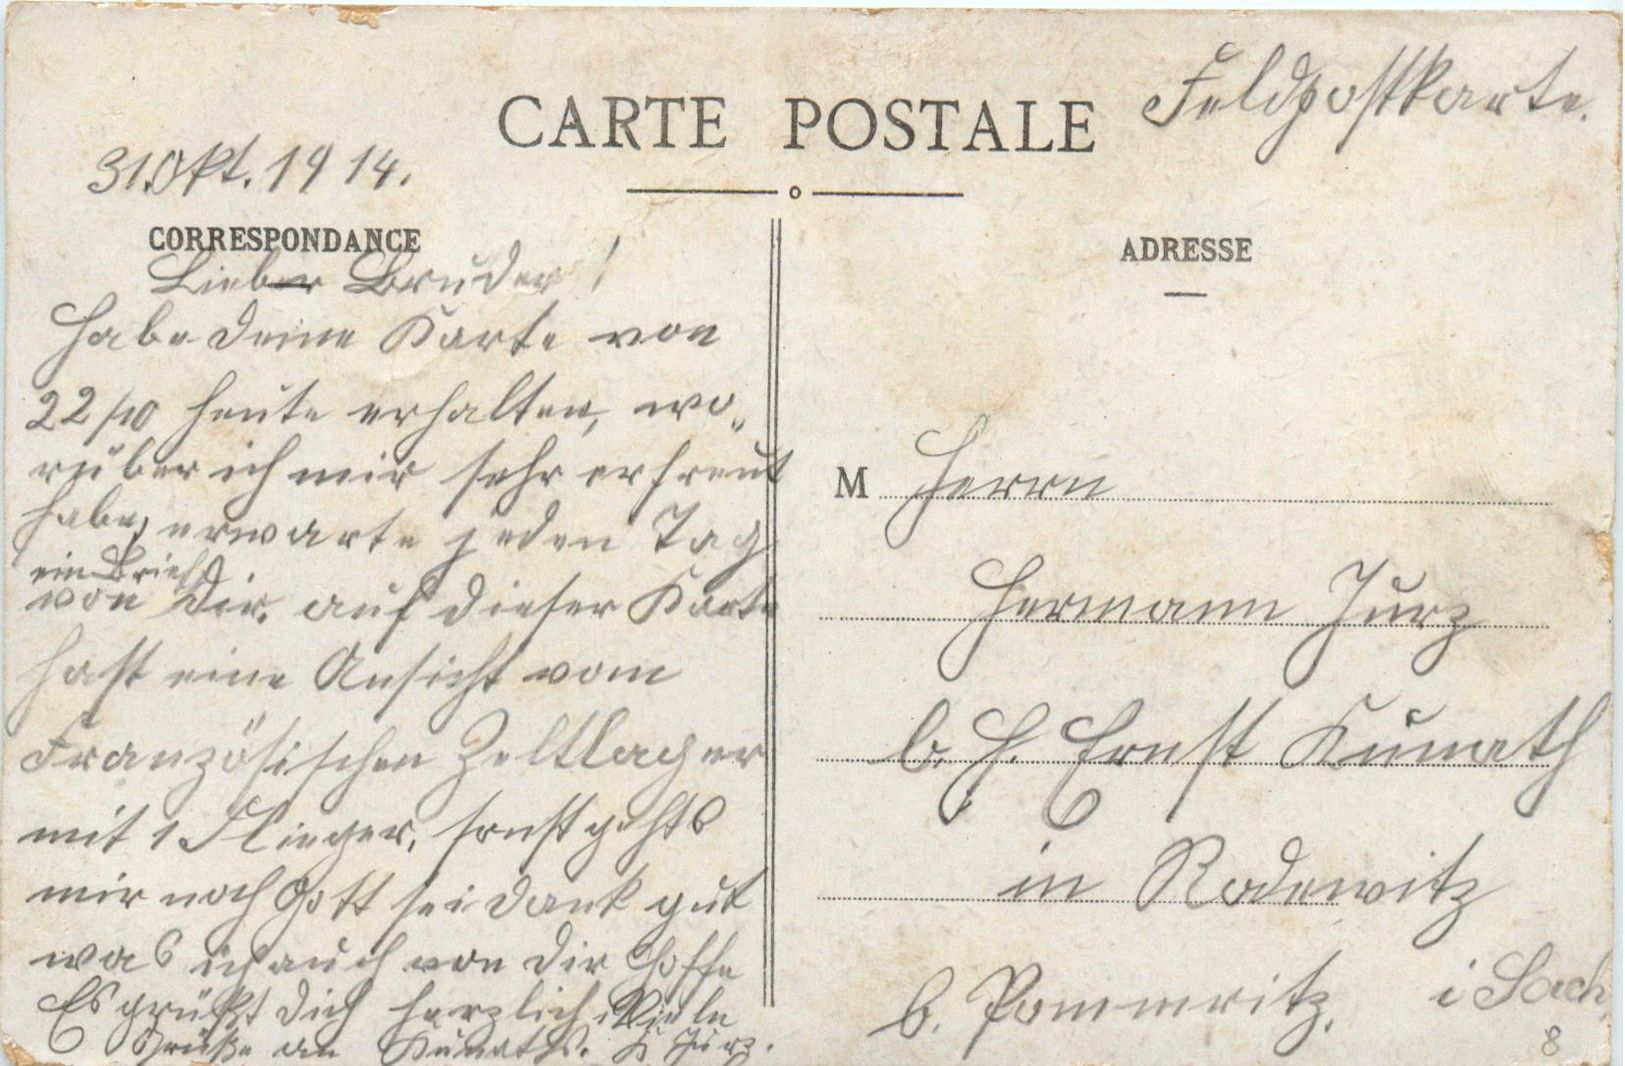 CARTE POSTALE
Feldpostkarte.
31. Okt. 1914.
CORRESPONDANCE
Lieber Bruder!
Habe deine Karte von
22/10 heute erhalten, wo„
rüber ich mir sehr erfreut
habe, erwarte jeden Tag
ein Brief
von Dir. auf dieser Karte
hast eine Ansicht vom
Französischen Zeltlager
mit 1 Flieger, sonst gehts
mir noch Gott sei dank gut
was ich auch von Dir hoffe
Es grüßt Dich herzlich Viele
Grüße an Kunaths. K Jurz.
ADRESSE
M Herrn
Hermann Jurz
b. H. Ernst Kunath
in Rodewitz
b. Pommritz. i Sach.
8